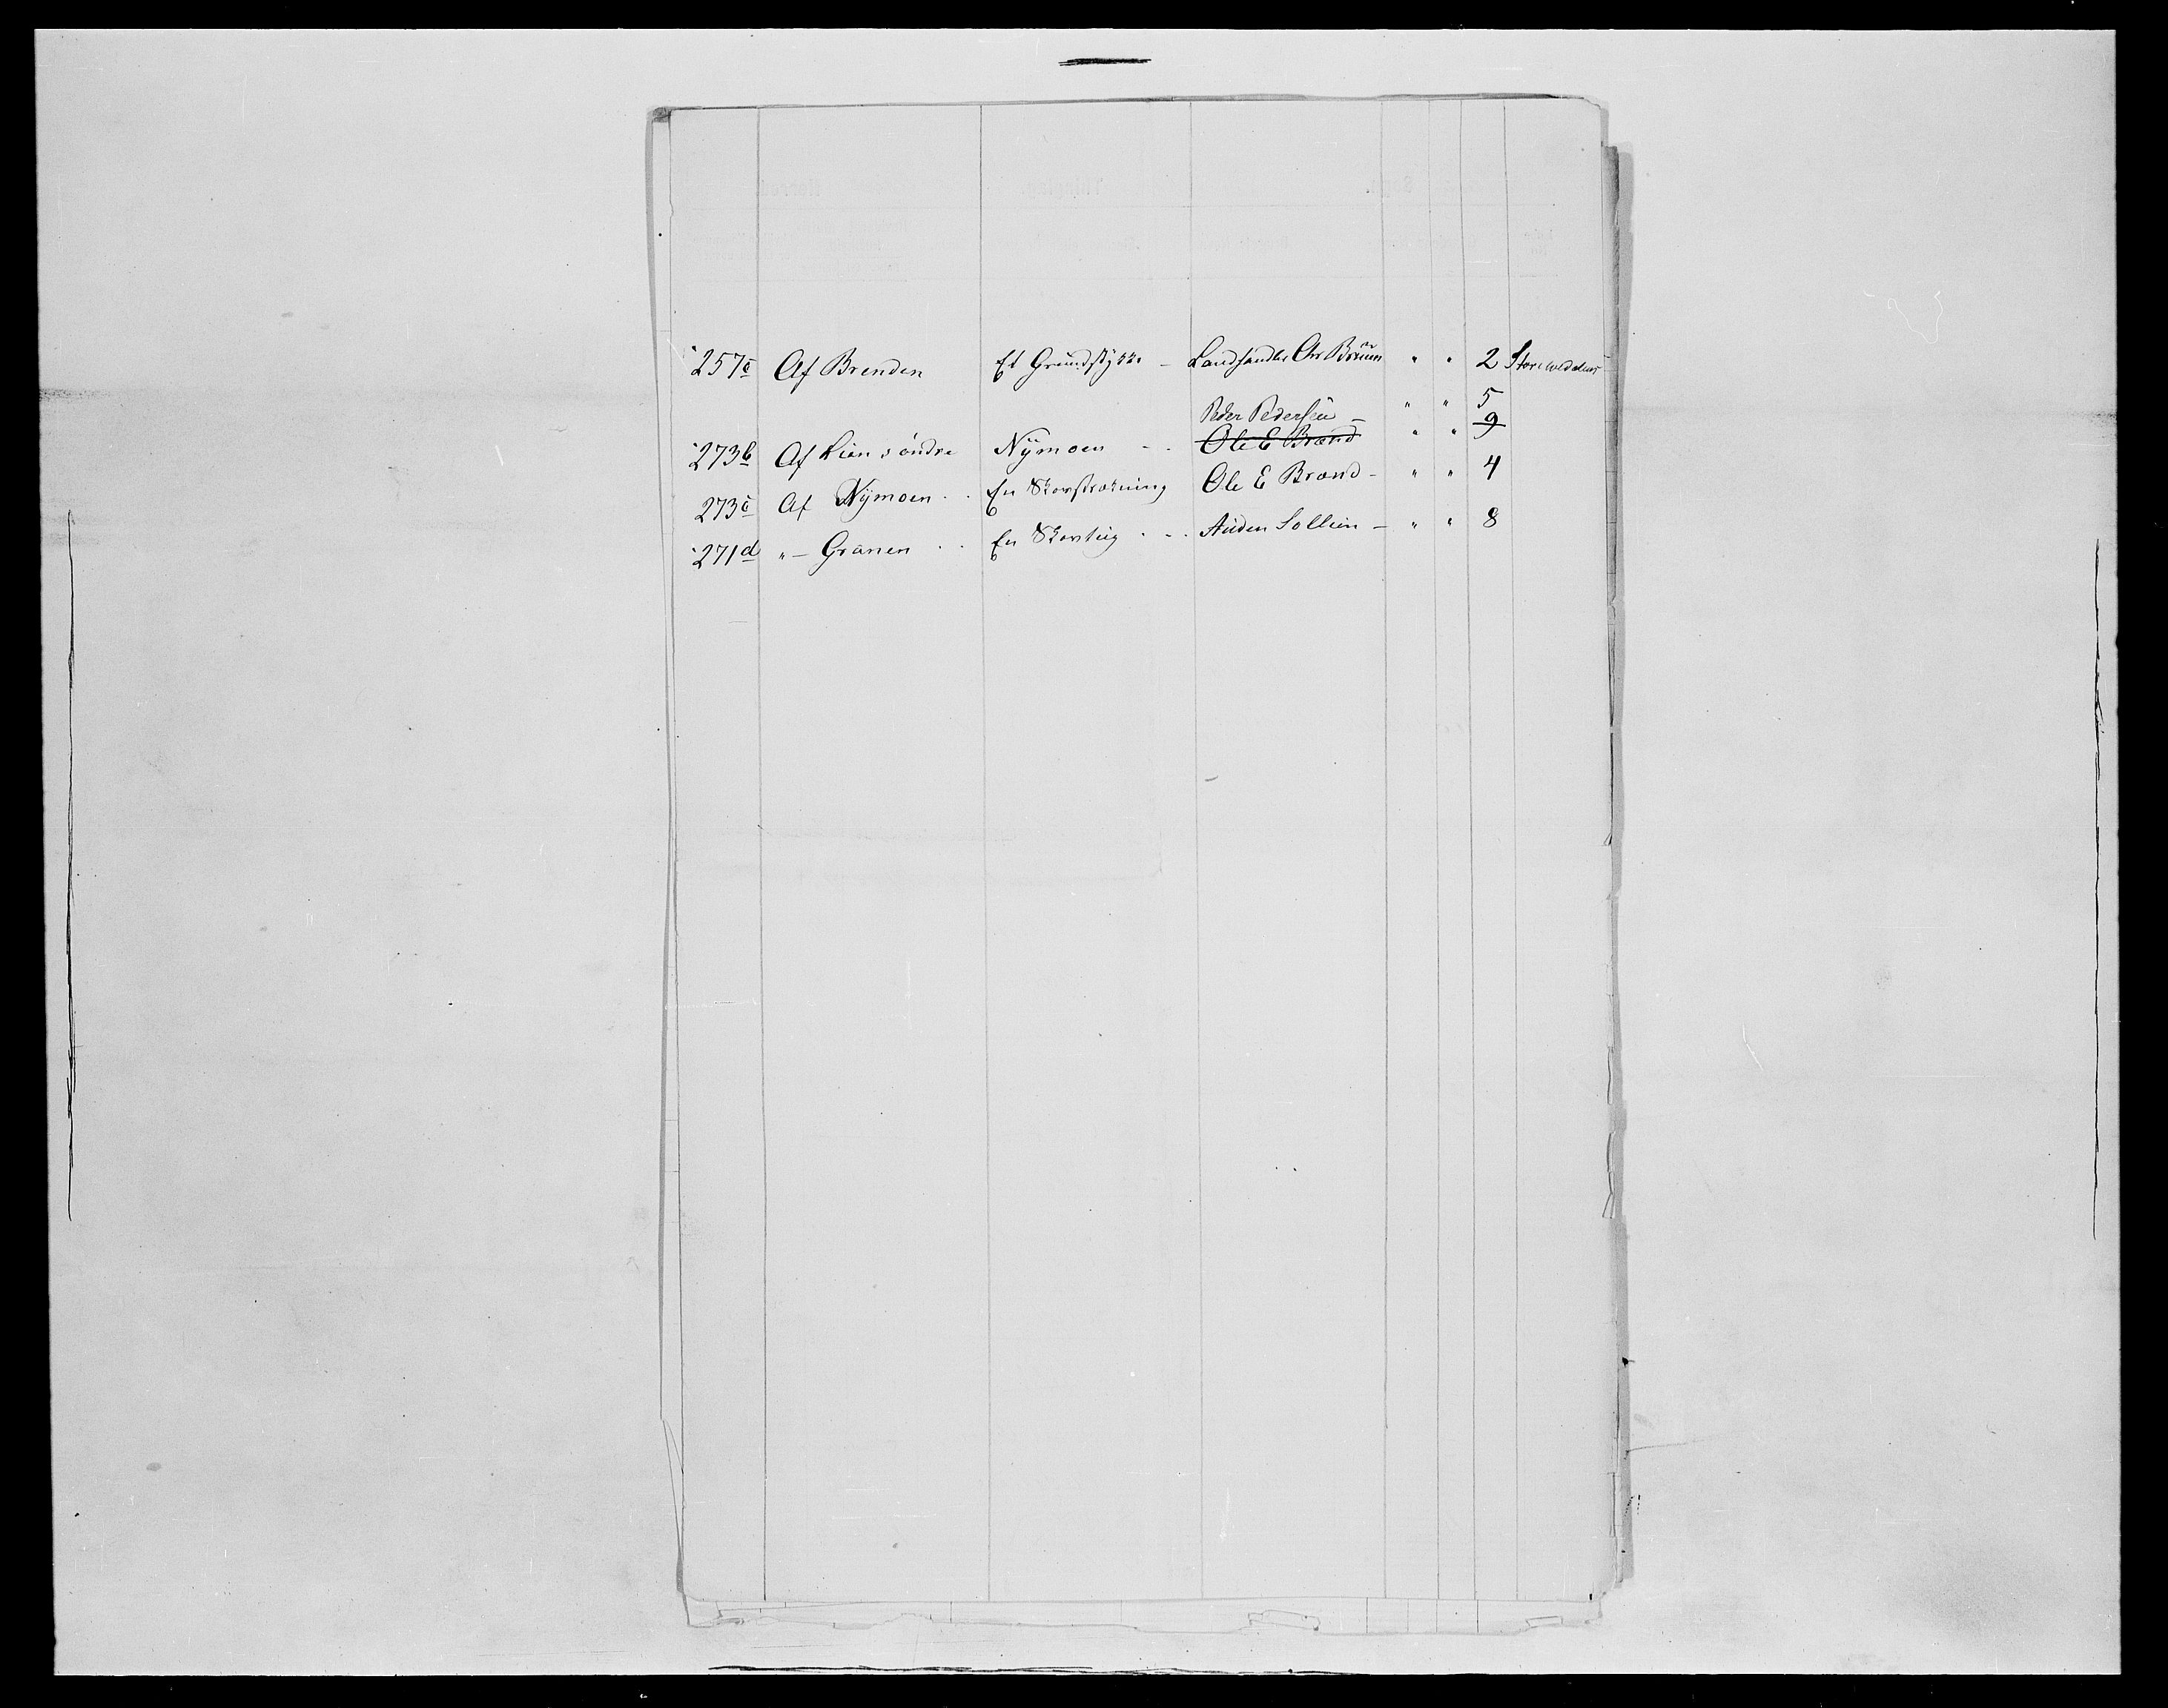 257c Af Brenden Et Grundstykke - Landhandler Chr Bruun " " 2
Peder Pedersen - " " 5
273b Af Lien søndre Nÿmoen - - Ole E Brænd " " 9
273c Af Nÿmoen - - En Skovstrækning Ole E Brænd - " " 4
271d " - Granen - - En Skovteig - - - Auden Sollien - " " 8